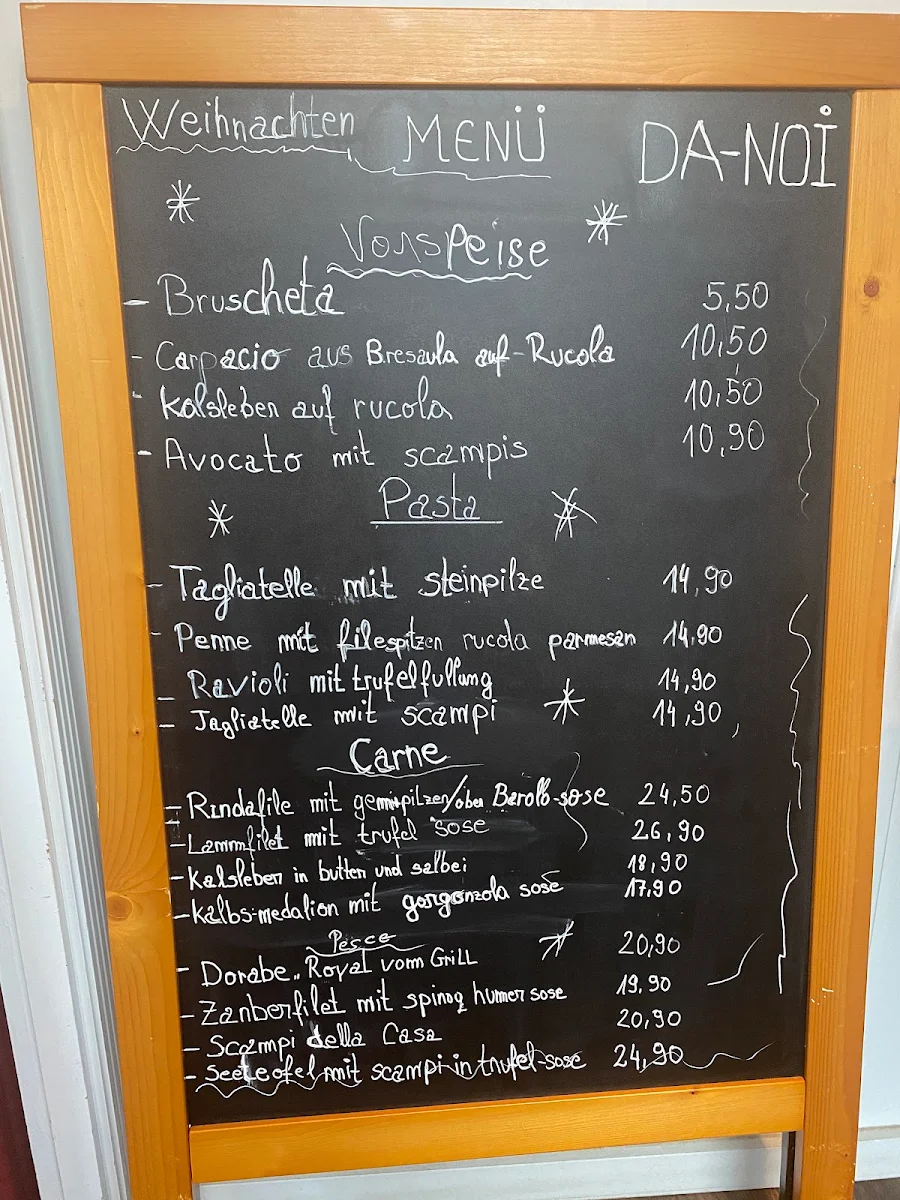 Weihnachten MENÜ DA-NOI
Vorspeise
- Bruscheta 5,50
- Carpacio aus Bresaula auf-Rucola 10,50
- Kalsleben auf rucola 10,50
- Avocato mit scampis 10,90
Pasta
- Tagliatelle mit steinpilze 14,90
- Penne mit filespitzen rucola parmesan 14,90
- Ravioli mit trufelfullung 14,90
- Tagliatelle mit scampi 14,90
Carne
- Rindafile mit /ober Barollo-sose 24,50
- Lammfilet mit trufel sose 26,90
- Kalsleben in butter und salbei 18,90
- Kalbs-medalion mit gorgonzola sose 17,90
Pesce
- Dorabe "Royal vom Grill 20,90
- Zanberfilet mit spinaq humer sose 19,90
- Scampi della Casa 20,90
- Seeteofel mit scampi in trufel-sose 24,90